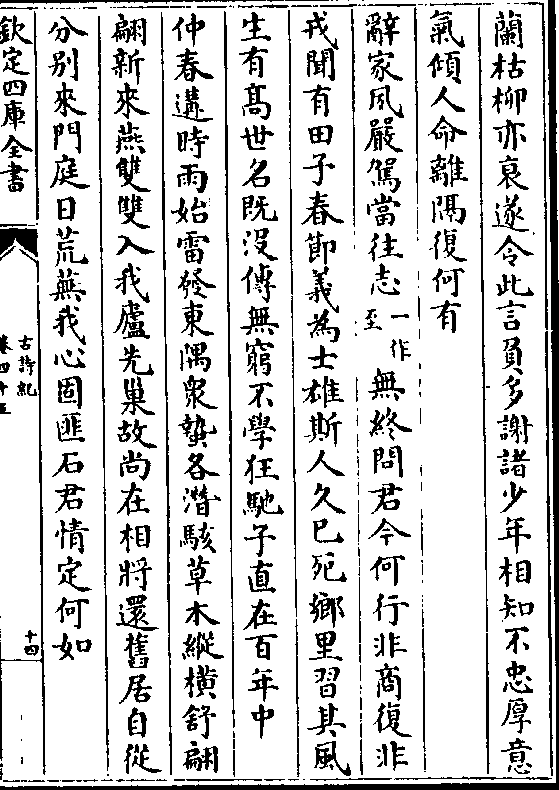 蘭枯栁亦衰遂令此言負多謝諸少年相知不忠厚意
氣傾人命離隔復何有
辭家夙嚴駕當往志一作至無終問君今何行非商復非
戎聞有田子春節義為士雄斯人久已死鄉里習其風
生有髙世名既没傳無窮不學狂馳子直在百年中
仲春遘時雨始雷發東隅衆蟄各潛駭草木縱橫舒翩
翩新來燕雙雙入我廬先巢故尚在相將還舊居自從
分别來門庭日荒蕪我心固匪石君情定何如
欽定四庫全書
古詩紀
卷四十五
十四